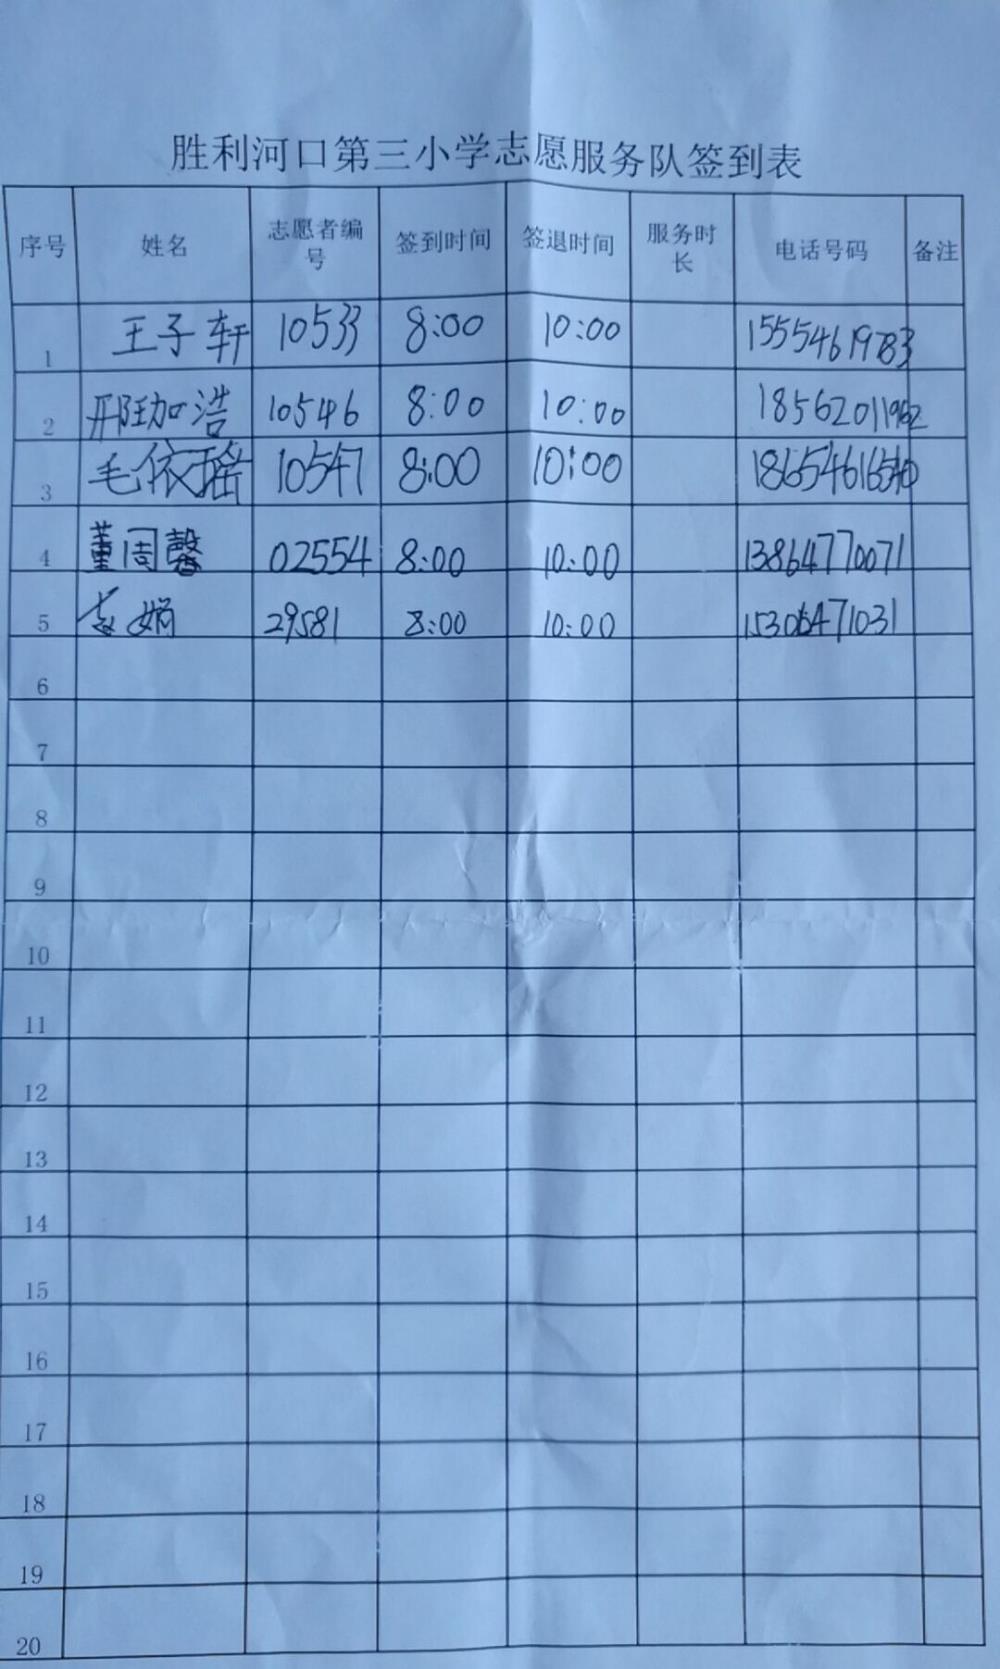 胜利河口第三小学志愿服务队签到表
序号 姓名 志愿者编号 签到时间 签退时间 服务时长 电话号码 备注
1 王子轩 10533 8:00 10:00 15554619783
2 邢珈浩 10546 8:00 10:00 18562011962
3 毛依瑶 10547 8:00 10:00
4 董周馨 02554 8:00 10:00 13864770071
5 29581 8:00 10:00 15306471031
6
7
8
9
10
11
12
13
14
15
16
17
18
19
20